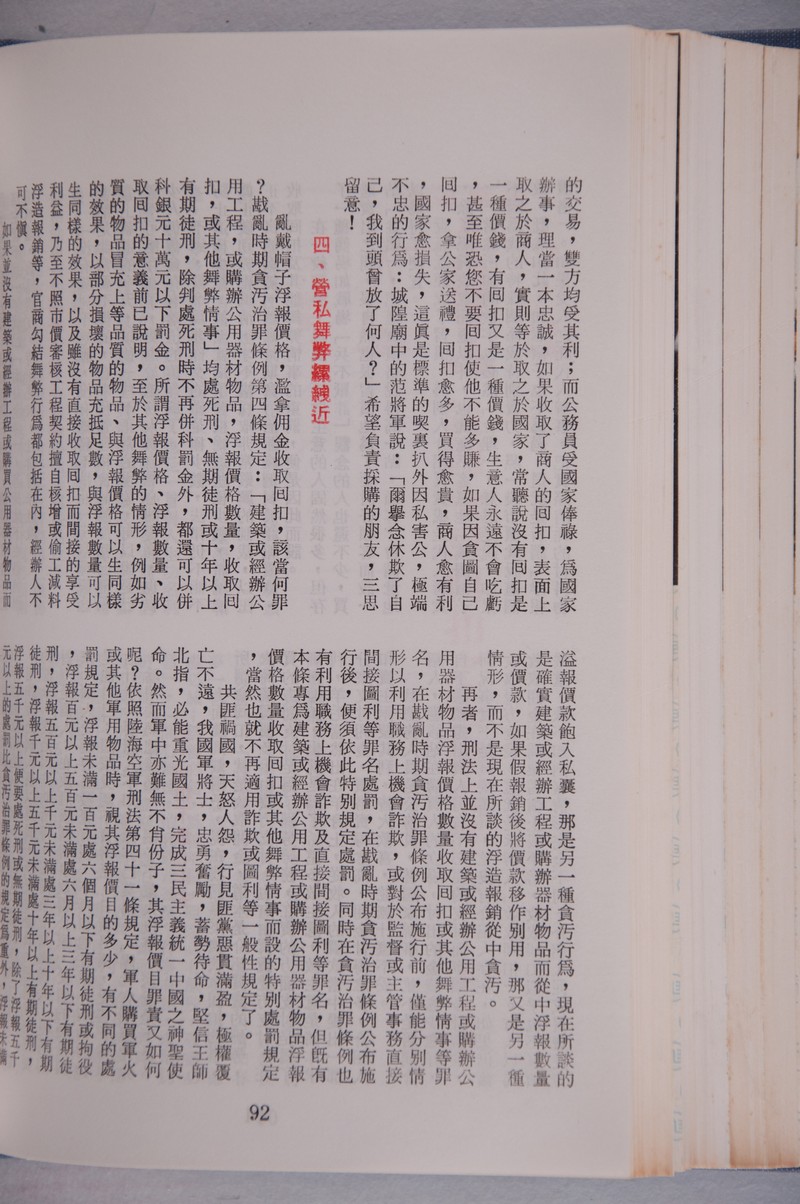 的交易，雙方均受其利；而公務員受國家俸祿，爲國家
辦事，理當一本忠誠，如果收取了商人的回扣，表面上
取之於商人，實則等於取之於國家，常聽說沒有回扣是
一種價錢，有回扣又是一種價錢，生意人永遠不會吃虧
，甚至唯恐您不要回扣使他不能多賺，如果因貪圖自己
回扣，拿公家送禮，回扣愈多，買得愈貴，商人愈有利
，國家愈損失，這眞是標準的喫裏扒外因私害公，極端
不忠的行爲：城隍廟中的范將軍說：「爾擧念休欺了自
己，我到頭曾放了何人？」希望負責採購的朋友，三思
留意！
四、營私舞弊縲絏近
亂戴帽子浮報價格，濫拿佣金收取回扣，該當何罪
？戡亂時期貪汚治罪條例第四條規定：「建築或經辦公
用工程，或購辦公用器材物品，浮報價格數量，收取回
扣，或其他舞弊情事」均處死刑、無期徒刑或十年以上
有期徒刑，除判處死刑時不再併科罰金外，都還可以併
科銀元十萬元以下罰金。所謂浮報價格、浮報數量、收
取回扣的意義前已說明，至於其他舞弊的情形，例如劣
質的物品冒充上等品質的物品、與浮報價格可以生同樣
的效果，以部分損壞的物品充抵足數，與浮報數量可以
生同樣的效果，以及雖沒有直接收取回扣而間接的享受
利益，乃至不照市價審核工程契約擅自核增或偷工減料
浮造報銷等，官商勾結舞弊行爲都包括在內，經辦人不
可不愼。
如果並沒有建築或經辦工程或購買公用器材物品而
溢報價款飽入私囊，那是另一種貪汚行爲，現在所談的
是確實建築或經辦工程或購辦器材物品而從中浮報數量
或價款，如果假報銷後將價款移作別用，那又是另一種
情形，而不是現在所談的浮造報銷從中貪汚。
再者，刑法上並沒有建築或經辦公用工程或購辦公
用器材物品浮報價格數量收取回扣或其他舞弊情事等罪
名，在戡亂時期貪汚治罪條例公布施行前，僅能分別情
形以利用職務上機會詐欺，或對於監督或主管事務直接
間接圖利等罪名處罰，在戡亂時期貪汚治罪條例公布施
行後，便須依此特別規定處罰。同時在貪汚治罪條例也
有利用職務上機會詐欺及直接間接圖利等罪名，但旣有
本條專爲建築或經辦公用工程或購辦公用器材物品浮報
價格數量收取回扣或其他舞弊情事而設的特別處罰規定
，當然也就不再適用詐欺或圖利等一般性規定了。
共匪禍國，天怒人怨，行見匪黨惡貫滿盈，極權覆
亡不遠，我國軍將士，忠勇奮勵，蓄勢待命，堅信王師
北指，必能重光國土，完成三民主義統一中國之神聖使
命。然而軍中亦難無不肖份子，其浮報價目罪責又如何
呢？依照陸海空軍刑法第四十一條規定，軍人購買軍火
或其他軍用物品時，視其浮報價目的多少，有不同的處
罰規定，浮報未滿一百元處六個月以下有期徒刑或拘役
，浮報百元以上五百元未滿處六月以上三年以下有期徒
刑，浮報五百元以上千元未滿處三年以上十年以下有期
徒刑，浮報千元以上五千元未滿處十年以上有期徒刑，
浮報五千元以上便要處死刑或無期徒刑，除了浮報五千
元以上的處罰比貪汚治罪條例的規定爲重外，浮報未滿
92